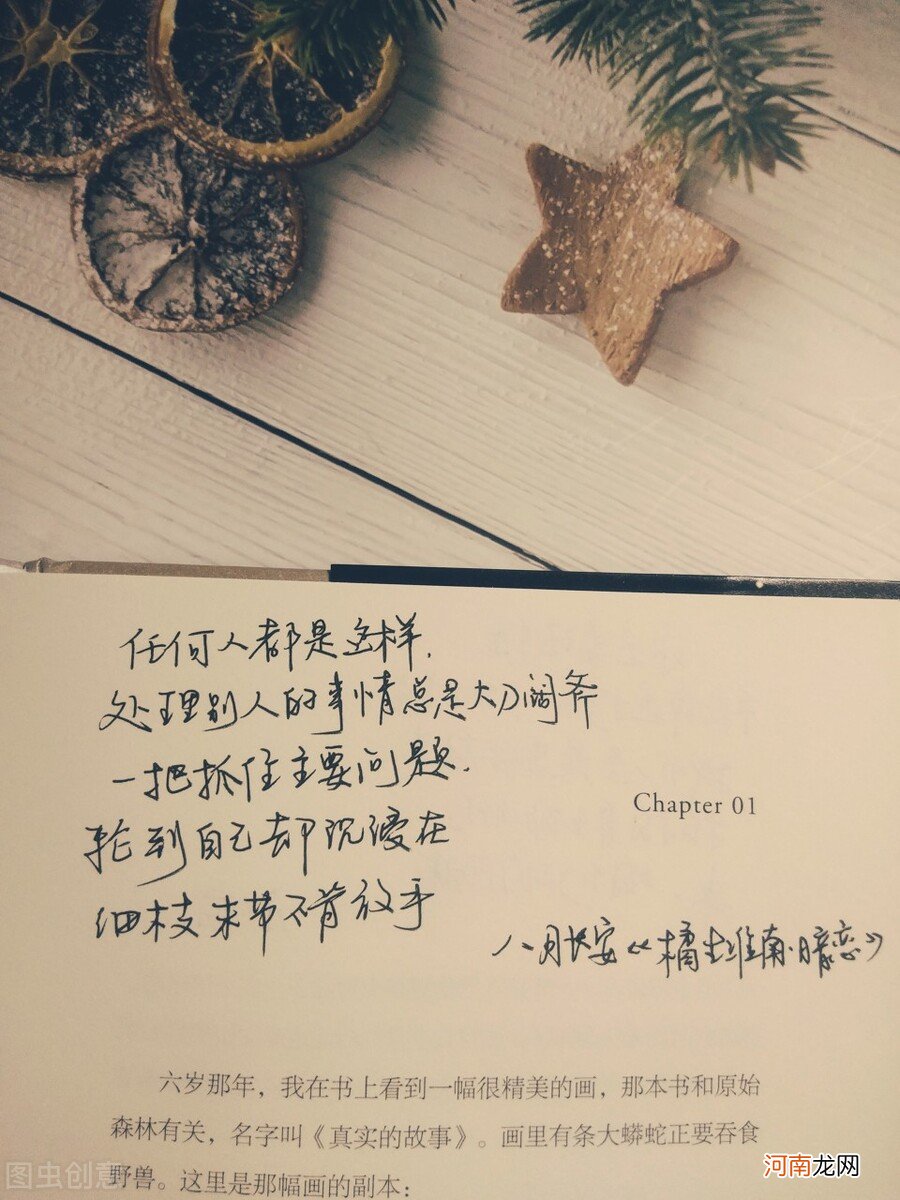 任何人都是这样.
处理别人的事情总是大刀阔斧
一把抓住主要问题.
轮到自己却沉溺在
细枝末节不肯放手
Chapter 01
八月长安《橘生淮南·暗恋》
六岁那年，我在书上看到一幅很精美的画，那本书和原始
森林有关，名字叫《真实的故事》。画里有条大蟒蛇正要吞食
野兽。这里是那幅画的副本：
图虫创意
河南龙网